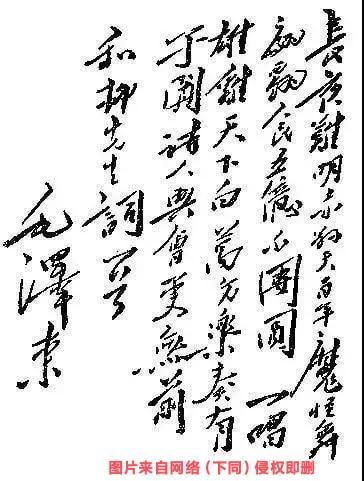 長夜難明赤縣天百年魔怪舞
翩翩人民五億不團圓 一唱
雄雞天下白萬方樂奏有
于闐詩人興會更無前
和柳先生詞一首
毛澤東
图片来自网络(下同)侵权即删